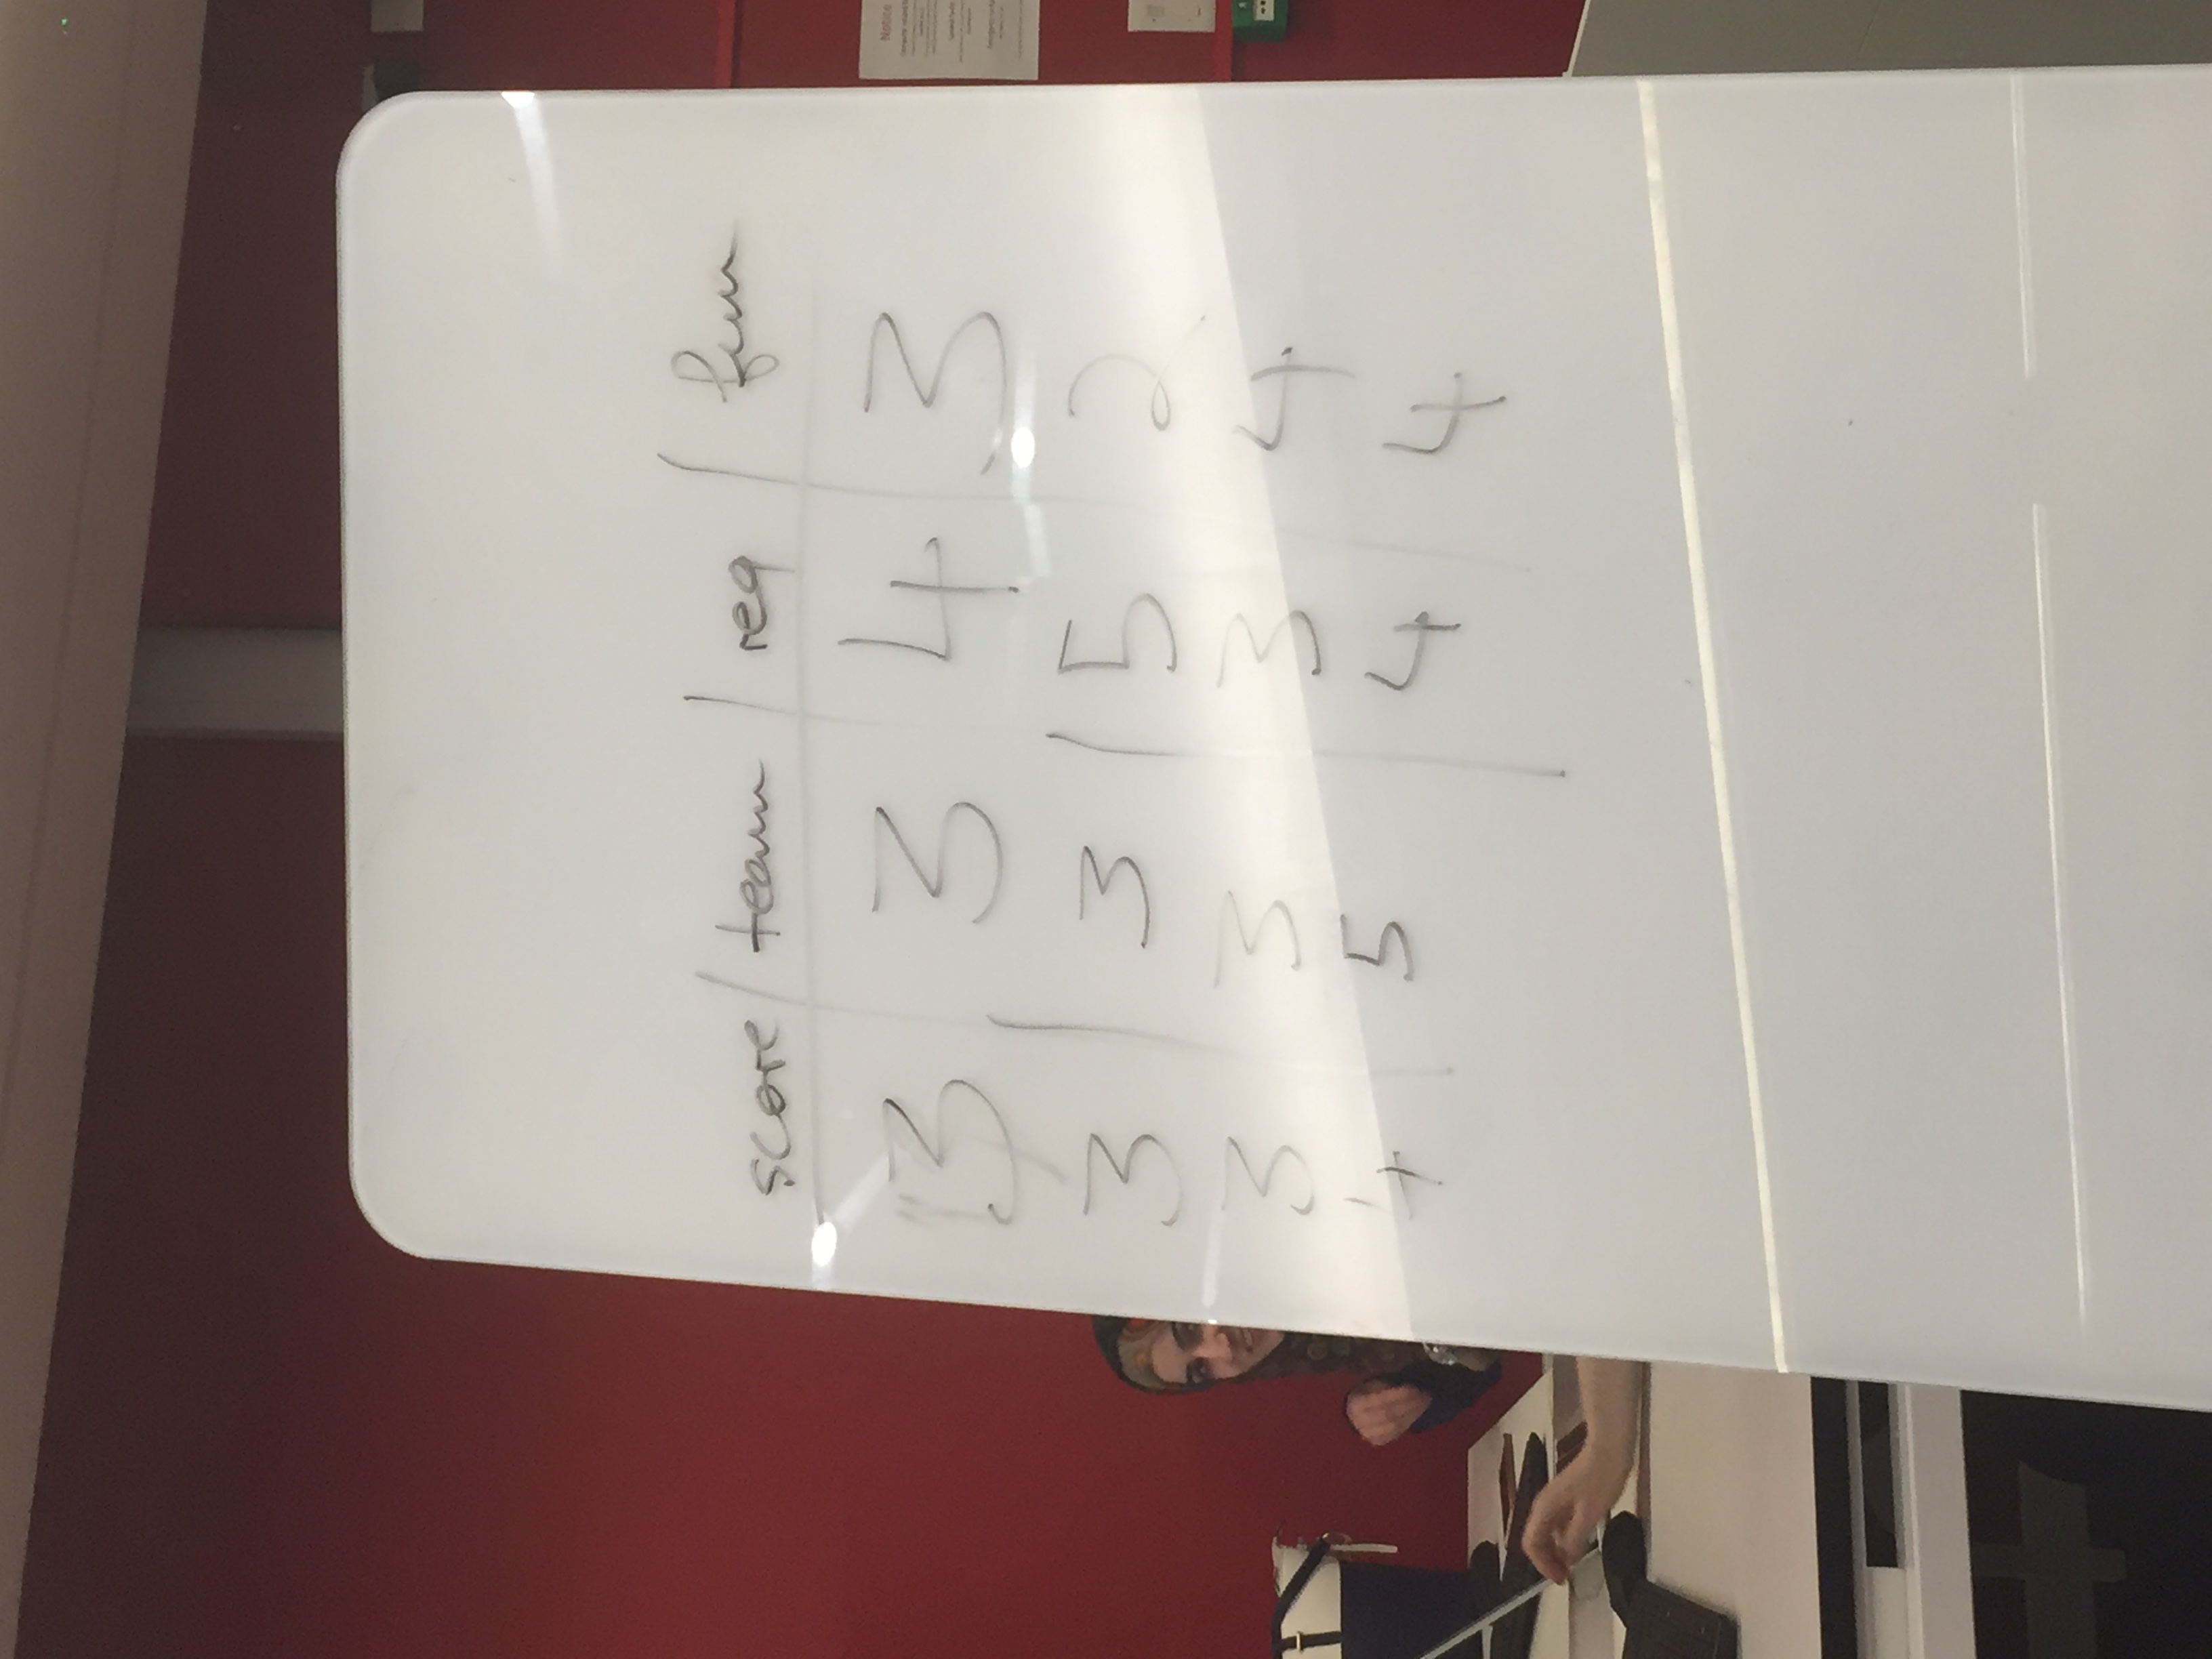 score team req fun
3 3 4 3
3 3 5 2
3 3 3 4
4 5 4 4
Notice